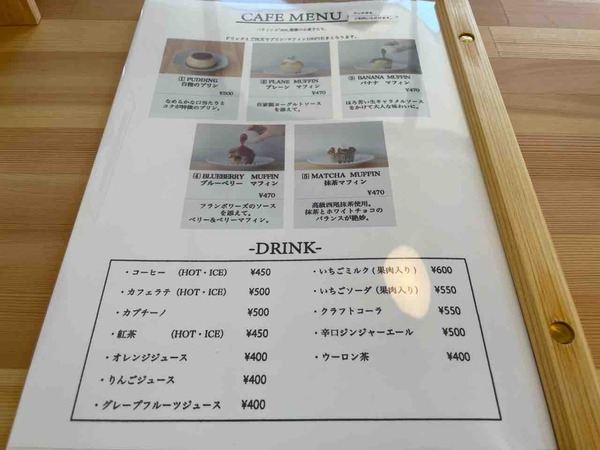 CAFE MENU
ドリンクとご注文でプリン・マフィン100円引きとなります。
① PUDDING
自慢のプリン
なめらかな口当たりと
コクが特徴のプリン。
② PLANE MUFFIN
プレーン マフィン
¥470
自家製ヨーグルトソース
を添えて。
③ BANANA MUFFIN
バナナ マフィン
¥470
ほろ苦い生キャラメルソース
をかけて大人な味わいに。
④ BLUEBERRY MUFFIN
ブルーベリー マフィン
¥470
フランボワーズのソース
を添えて。
ベリー&ベリーマフィン。
⑤ MATCHA MUFFIN
抹茶マフィン
¥470
高級西尾抹茶使用。
抹茶とホワイトチョコの
バランスが絶妙。
-DRINK-
・コーヒー (HOT・ICE) ¥450
・カフェラテ (HOT・ICE) ¥500
・カプチーノ ¥500
・紅茶 (HOT・ICE) ¥450
・オレンジジュース ¥400
・りんごジュース ¥400
・グレープフルーツジュース ¥400
・いちごミルク(果肉入り) ¥600
・いちごソーダ(果肉入り) ¥550
・クラフトコーラ ¥550
・辛口ジンジャーエール ¥500
・ウーロン茶 ¥400